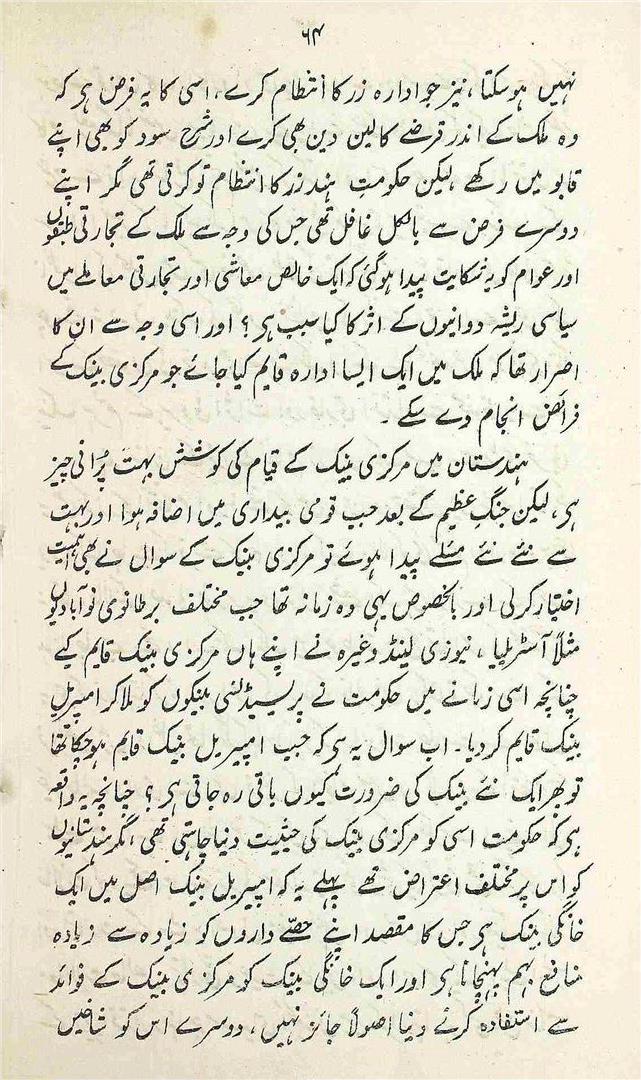 ۶۴
نہیں ہوسکتا، نیز جو ادارہ زر کا انتظام کرے، اسی کا یہ فرض ہر کہ
وہ ملک کے اندر قرضے کا لین دین بھی کرے اور شرح سود کو بھی اپنے
قابو میں رکھے، لیکن حکومتِ ہند زر کا انتظام تو کرتی تھی مگر اپنے
دوسرے فرض سے بالکل غافل تھی جس کی وجہ سے ملک کے تجارتی طبقوں
اور عوام کو یہ شکایت پیدا ہوگئی کہ ایک خالص معاشی اور تجارتی معاملے میں
سیاسی ریشہ دوانیوں کے اثر کا کیا سبب ہر ؟ اور اسی وجہ سے ان کا
اصرار تھا کہ ملک میں ایک ایسا ادارہ قایم کیا جائے جو مرکزی بینک کے
فرائض انجام دے سکے ۔
ہندستان میں مرکزی بینک کے قیام کی کوشش بہت پُرانی چیز
ہر، لیکن جنگِ عظیم کے بعد جب قومی بیداری میں اضافہ ہوا اور بہت
سے نئے نئے مسئلے پیدا ہوئے تو مرکزی بینک کے سوال نے بھی اہمیت
اختیار کرلی اور بالخصوص یہی وہ زمانہ تھا جب مختلف برطانوی نوآبادیوں
مثلاً آسٹریلیا ، نیوزی لینڈ وغیرہ نے اپنے ہاں مرکزی بینک قایم کیے
چنانچہ اسی زمانے میں حکومت نے پریسیڈنسی بینکوں کو ملاکر امپریل
بینک قایم کردیا۔ اب سوال یہ ہر کہ جب امپیریل بینک قایم ہوچکا تھا
تو پھر ایک نئے بینک کی ضرورت کیوں باقی رہ جاتی ہر ؟ چنانچہ یہ واقعہ
ہر کہ حکومت اسی کو مرکزی بینک کی حیثیت دینا چاہتی تھی ، مگر ہندستانیوں
کو اس پر مختلف اعتراض تھے پہلے یہ کہ امپیریل بینک اصل میں ایک
خانگی بینک ہر جس کا مقصد اپنے حصّے داروں کو زیادہ سے زیادہ
منافع بہم پہنچانا ہر اور ایک خانگی بینک کو مرکزی بینک کے فوائد
سے استفادہ کرنے دینا اصولاً جائز نہیں، دوسرے اس کو شاخیں